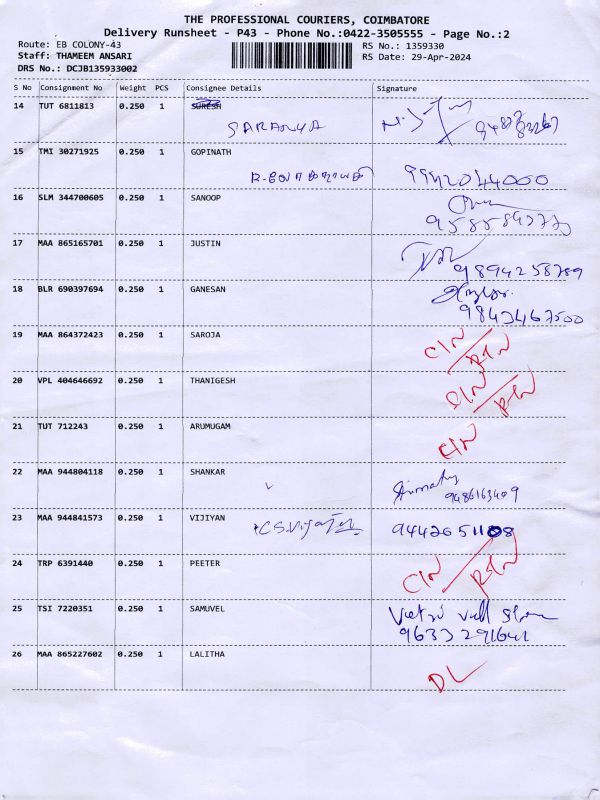 THE PROFESSIONAL COURIERS, COIMBATORE
Delivery Runsheet - P43 - Phone No.:0422-3505555 - Page No.:2
Route: EB COLONY-43 RS No.: 1359330
Staff: THAMEEM ANSARI RS Date: 29-Apr-2024
DRS No.: DCJB135933002
S No Consignment No Weight PCS Consignee Details Signature
14 TUT 6811813 0.250 1 SURESH
SARANYA
15 TMI 30271925 0.250 1 GOPINATH
9942044000
16 SLM 344700605 0.250 1 SANOOP
17 MAA 865165701 0.250 1 JUSTIN
9894258789
18 BLR 690397694 0.250 1 GANESAN
9843467500
19 MAA 864372423 0.250 1 SAROJA CIN
RTN
20 VPL 404646692 0.250 1 THANIGESH CIN
RTN
21 TUT 712243 0.250 1 ARUMUGAM
CIN
22 MAA 944804118 0.250 1 SHANKAR
9486163409
23 MAA 944841573 0.250 1 VIJIYAN
9442651108
24 TRP 6391440 0.250 1 PEETER CIN
RTN
25 TSI 7220351 0.250 1 SAMUVEL
9633291641
26 MAA 865227602 0.250 1 LALITHA
DL